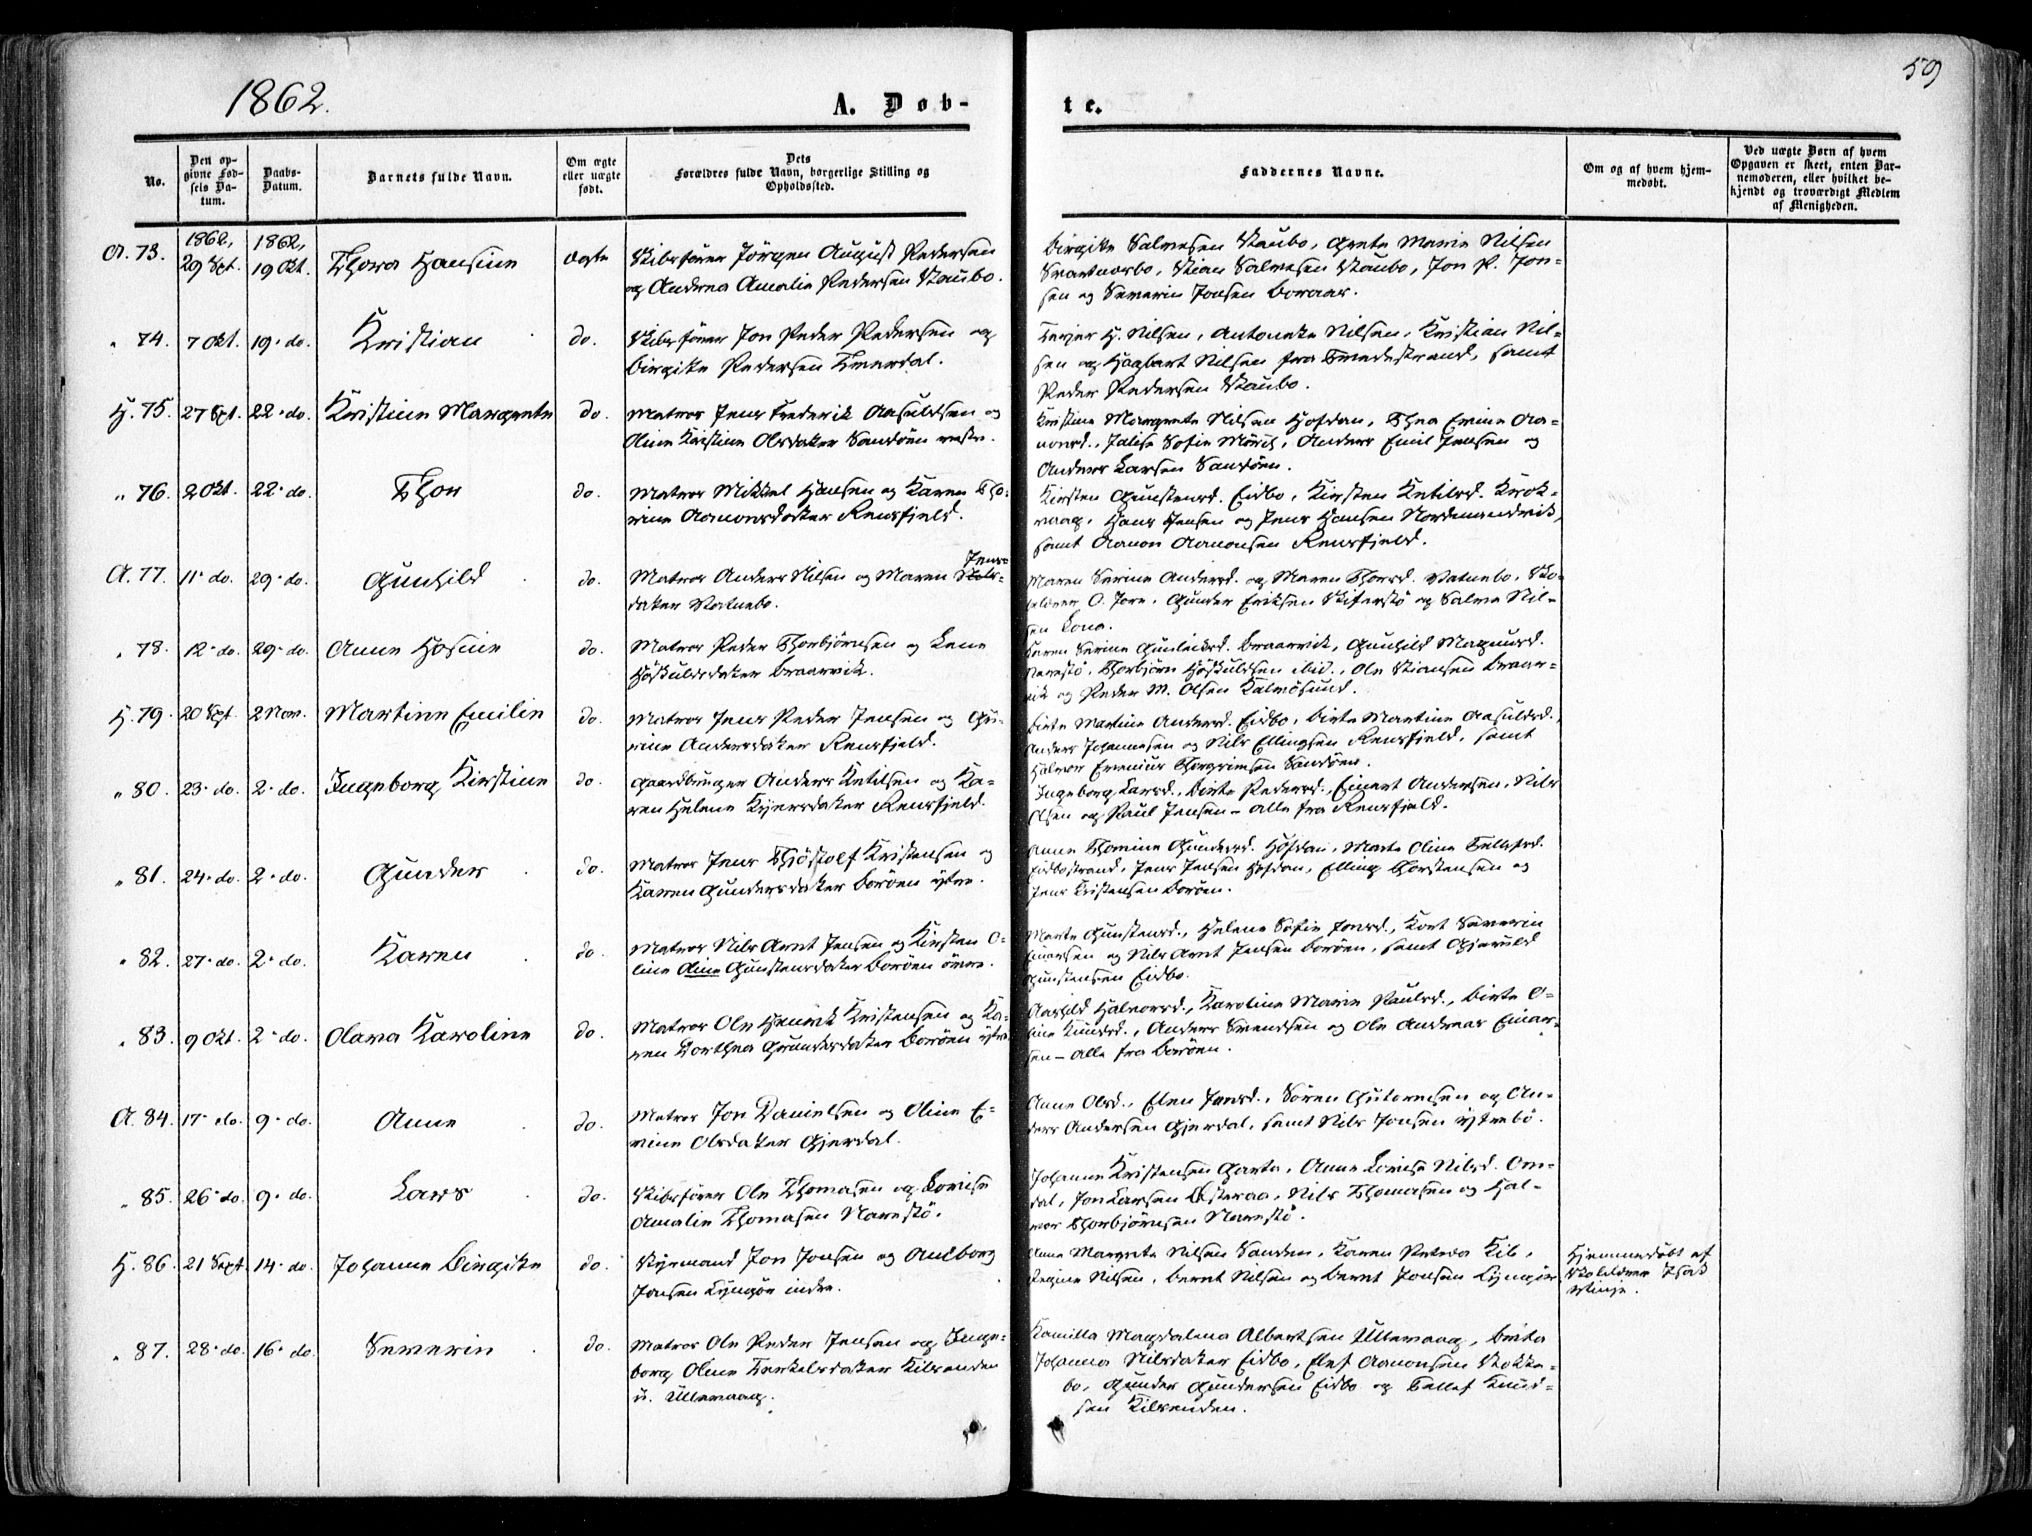 1862.
A. Døb-
te.
59
No.
Den op-
givne Fød-
sels Da-
tum.
Daabs-
Datum.
Barnets fulde Navn.
Om ægte
eller uægte
født.
Dets
Forældres fulde Navn, borgerlige Stilling og
Opholdssted.
Faddernes Navne.
Om og af hvem hjem-
medøbt.
Ved uægte Børn af hvem
Opgaven er skeet, enten Bar-
nemoderen, eller hvilket be-
kjendt og troværdigt Medlem
af Menigheden.
A. 73.
1862,
29 Spt.
1862,
19 Okt.
Thora Hansine
ægte
Skibsfører Jörgen August Pedersen
og Andrea Amalie Pedersen Staubo.
Birgitte Salvesen Staubo, Grete Marie Nilsen
Svartnæsbo, Stian Salvesen Staubo, Jon P. Jon-
sen og Severin Jonsen Boraas.
" 74.
7 Okt.
19 · do.
Kristian
do.
Skibsfører Jon Peder Pedersen og
Birgitte Pedersen Tverdal.
Terjer H. Nilsen, Antonette Nilsen, Kristian Nil-
sen og Hagbart Nilsen fra Tvedestrand, samt
Peder Pedersen Staubo.
H. 75.
27 Spt.
22 · do.
Kristine Margrete
do.
Matros Jens Frederik Aasuldsen og
Oline Kristine Olsdatter Sandøen vestre.
Kristine Margrete Nilsen Hofdan, Thea Emine Aa-
nonsd., Sofie Anders Emil Jensen og
Anders Larsen Sandøen.
" 76.
2 Okt.
22 · do.
Thor
do.
Matros Mikkel Hansen og Karen Tho-
rine Aanonsdatter Rensfjeld.
Kirsten Gunstensd. Eidbo, Kirsten Ketilsd. Krok-
vaag, Hans Jensen og Jens Hansen Nordmandvik,
samt Aanon Aanonsen Rensfjeld.
A. 77.
11 · do.
29 · do.
Gunhild
do.
Matros Anders Nilsen og Maren Jens-
datter Vatnebo.
Maren Serine Andersd. og Maren Thorsd. Vatnebo, Sko-
lelærer O. Jore, Gunder Eriksen Skiferstö og Salve Nil-
sen Lona.
" 78.
12 · do.
29 · do.
Anne Hosine
do.
Matros Peder Thorbjörnsen og Lene
Höskuldsdatter Braarvik.
Karen Serine Gunleiksd. Braarvik, Gunhild Magnusd.
Narestö, Thorbjörn Höskuldsen ibid., Ole Stiansen Braar-
vik og Peder M. Olsen Kalvösund.
H. 79.
20 Spt.
2 Nov.
Martine Emilie
do.
Matros Jens Peder Jensen og Gu-
rine Andersdatter Rensfjeld.
Birte Martine Andersd. Eidbo, Birte Martine Aasuldsd.,
Anders Johannesen og Nils Ellingsen Rensfjeld, samt
Halvor Thorgrimsen Sandøen.
" 80.
23 · do.
2 · do.
Ingeborg Kirstine
do.
Gaardbruger Anders Ketilsen og Ka-
ren Helene Ejersdatter Rensfjeld.
Ingeborg Larsd., Birte Pedersd., Einert Andersen, Nils
Olsen og Paul Jensen – alle fra Rensfjeld.
" 81.
24 · do.
2 · do.
Gunder
do.
Matros Jens Thjöstolf Kristensen og
Karen Gundersdatter Borøen ytre.
Anne Thomine Gundersd. Hofdan, Marte Oline Tellefsd.
Eidbostrand, Jens Jensen Hofdan, Elling Thorstensen og
Jens Kristensen Borøen.
" 82.
27 · do.
2 · do.
Karen
do.
Matros Nils Arnt Jensen og Kirsten O-
line Gunstensdatter Borøen övre.
Marte Gunstensd., Helene Sofie Jonsd., Kort Severin
Einersen og Nils Arnt Jensen Borøen, samt Gjeruld
Gunstensen Eidbo.
" 83.
9 Okt.
2 · do.
Olava Karoline
do.
Matros Ole Henrik Kristensen og Ka-
ren Dorthea Gundersdatter Borøen ytre.
Aashild Halvorsd., Karoline Marie Paulsd., Birte O-
line Knudsd., Anders Svendsen og Ole Andreas Einar-
sen – alle fra Borøen.
A. 84.
17 · do.
9 · do.
Anne
do.
Matros Jon Danielsen og Oline E-
vine Olsdatter Gjerdal.
Anne Olsd., Elen Jensd., Sören Gutormsen og An-
ders Andersen Gjerdal, samt Nils Jonsen Ytrebö.
" 85.
26 · do.
9 · do.
Lars
do.
Skibsfører Ole Thomasen og Lovise
Amalie Thomasen Narestö.
Johanne Kristensen Garta, Anne Lovise Nilsd. Om-
dal, Jon Larsen Österaa, Nils Thomasen og Hal-
vor Thorbjörnsen Narestö.
H. 86.
21 Sept.
14 · do.
Johanne Birgitte
do.
Styrmand Jon Jonsen og Aulborg
Jonsen Lyngör indre.
Anne Margrete Nilsen Sanden, Karen Petrea Kil,
Regine Nilsen, Bernt Nilsen og Bernt Jonsen Lyngör.
Hjemmedøbt af
Skolelærer Isak
Stinje.
" 87.
28 · do.
16 · do.
Severin
do.
Matros Ole Peder Jensen og Inge-
borg Oline Terkelsdatter Kilsenden
u. Ullevaag.
Kamilla Magdalena Albertsen Ullevaag, Birte
Johanna Nilsdatter Eidbo, Elef Aanonsen Stokke-
bo, Gunder Gundersen Eidbo og Tellef Knud-
sen Kilsenden.